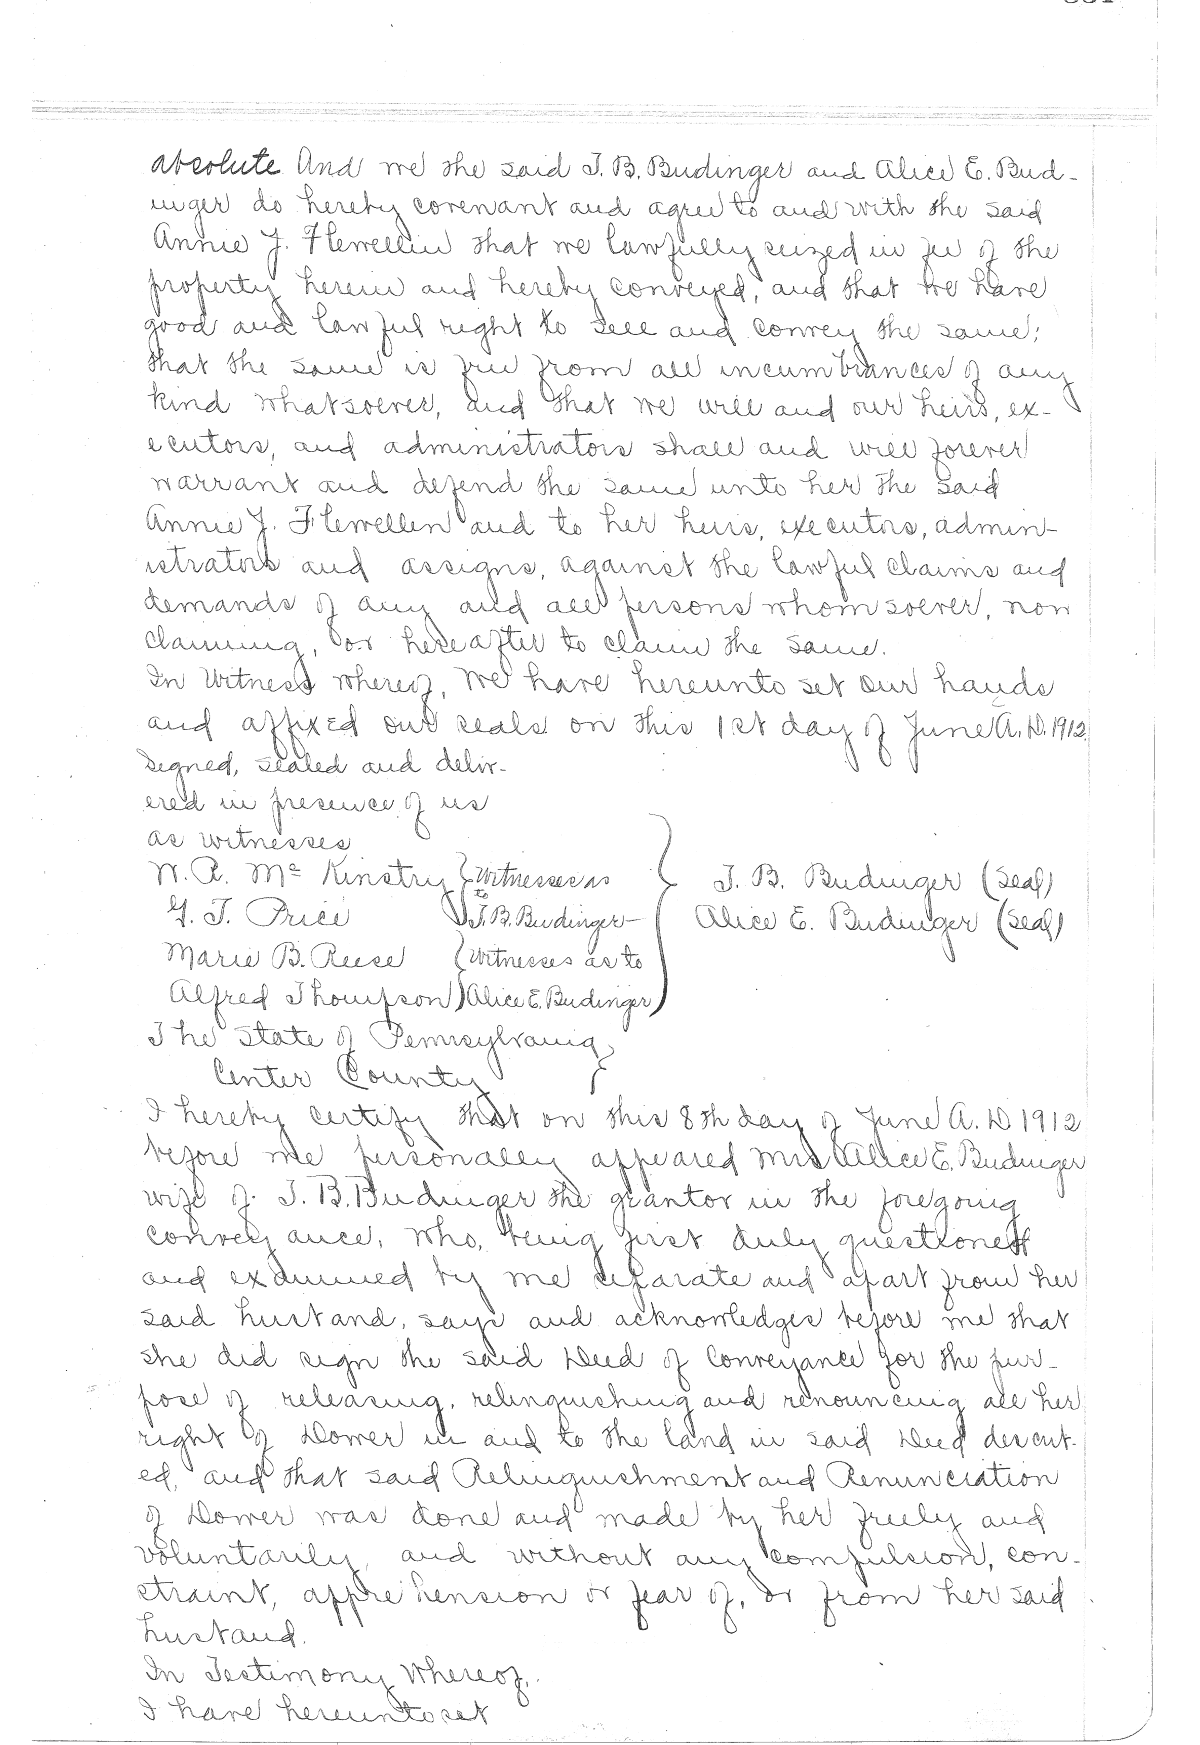 absolute. And we the said J. B. Budinger and Alice E. Bud-
inger do hereby covenant and agree to and with the said
Annie J. Flewellin that we lawfully seized in fee of the
property herein and hereby conveyed, and that we have
good and lawful right to sell and convey the same;
that the same is free from all incumbrances of any
kind whatsoever, and that we will and our heirs, ex-
ecutors, and administrators shall and will forever
warrant and defend the same unto her the said
Annie J. Flewellen and to her heirs, executors, admin-
istrators and assigns, against the lawful claims and
demands of any and all persons whomsoever, now
claiming, or hereafter to claim the same.
In Witness Whereof, We have hereunto set our hands
and affixed our seals on this 1st day of June A.D. 1912
Signed, sealed and deliv-
ered in presence of us
as witnesses
W. A. McKinstry } Witnesses as J. B. Budinger (Seal)
to
G. J. Price } J. B. Budinger- Alice E. Budinger (Seal)
Marie B. Reese } Witnesses as to
Alfred Thompson } Alice E. Budinger
The State of Pennsylvania }
Center County
I hereby certify that on this 8th day of June A. D 1912
before me personally appeared Mrs Alice E. Budinger
wife of J. B. Budinger the grantor in the foregoing
conveyance, who, being first duly questioned
and examined by me separate and apart from her
said husband, says and acknowledges before me that
she did sign the said Deed of Conveyance for the pur-
pose of releasing, relinquishing and renouncing all her
right of Dower in and to the land in said Deed describ-
ed, and that said Relinquishment and Renunciation
of Dower was done and made by her freely and
voluntarily, and without any compulsion, con-
straint, apprehension or fear of, or from her said
husband.
In Testimony Whereof,
I have hereunto set